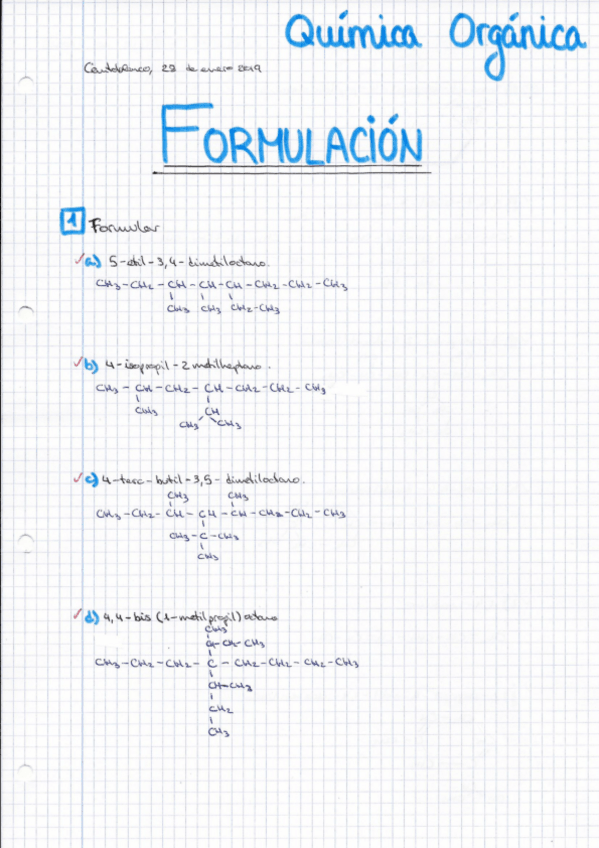 Química Orgánica
Cantoblanco, 22 de enero 2019
FORMULACIÓN
1 Formular
a) 5-etil-3,4-dimetiloctano.
CH3-CH2-CH-CH-CH-CH2-CH2-CH3
CH3 CH3 CH2-CH3
b) 4-isopropil-2metilheptano.
CH3-CH-CH2-CH-CH2-CH2-CH3
CH3 CH
CH3 CH3
c) 4-terc-butil-3,5-dimetiloctano.
CH3 CH3
CH3-CH2-CH-CH-CH-CH2-CH2-CH3
CH3-C-CH3
CH3
d) 4,4-bis (1-metilpropil) octano
CH3
CH-CH2-CH3
CH3-CH2-CH2-C-CH2-CH2-CH2-CH3
CH-CH3
CH2
CH3